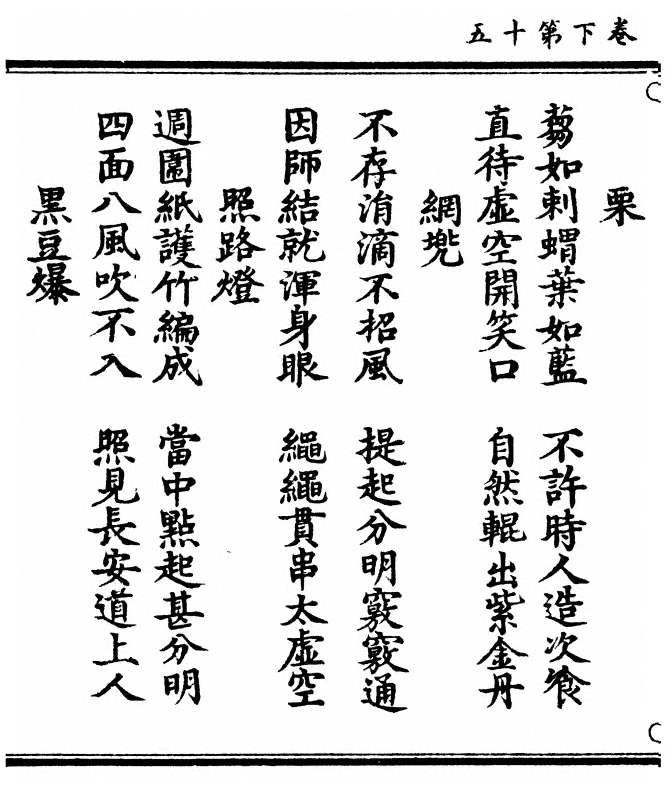 卷下第十五
栗
蒭如刺蝟葉如藍 不許時人造次飡
直待虛空開笑口 自然輥出紫金丹
網兠
不存涓滴不招風 提起分明竅竅通
因師結就渾身眼 繩繩貫串太虛空
照路燈
週圍紙護竹編成 當中點起甚分明
四面八風吹不入 照見長安道上人
黑豆爆